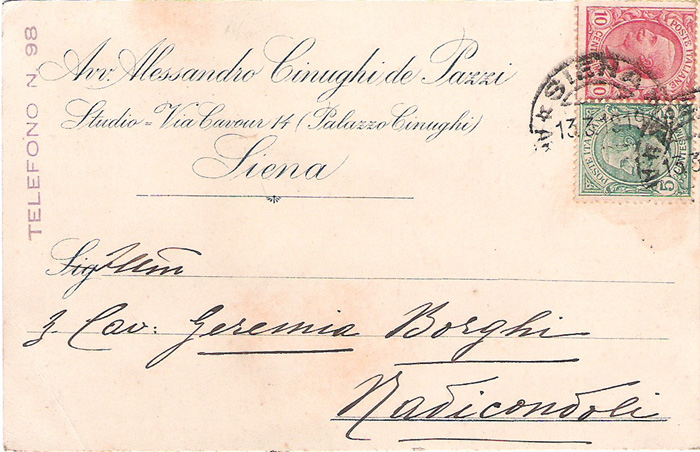 TELEFONO N. 98
Avv. Alessandro Cinughi de Pazzi
Studio = Via Cavour 14 (Palazzo Cinughi)
Siena
Sig
Cav: Geremia Borghi
Radicondoli
10 CENT
POSTE ITALIANE
10
SIENA
13.3
POSTE ITALIANE
5